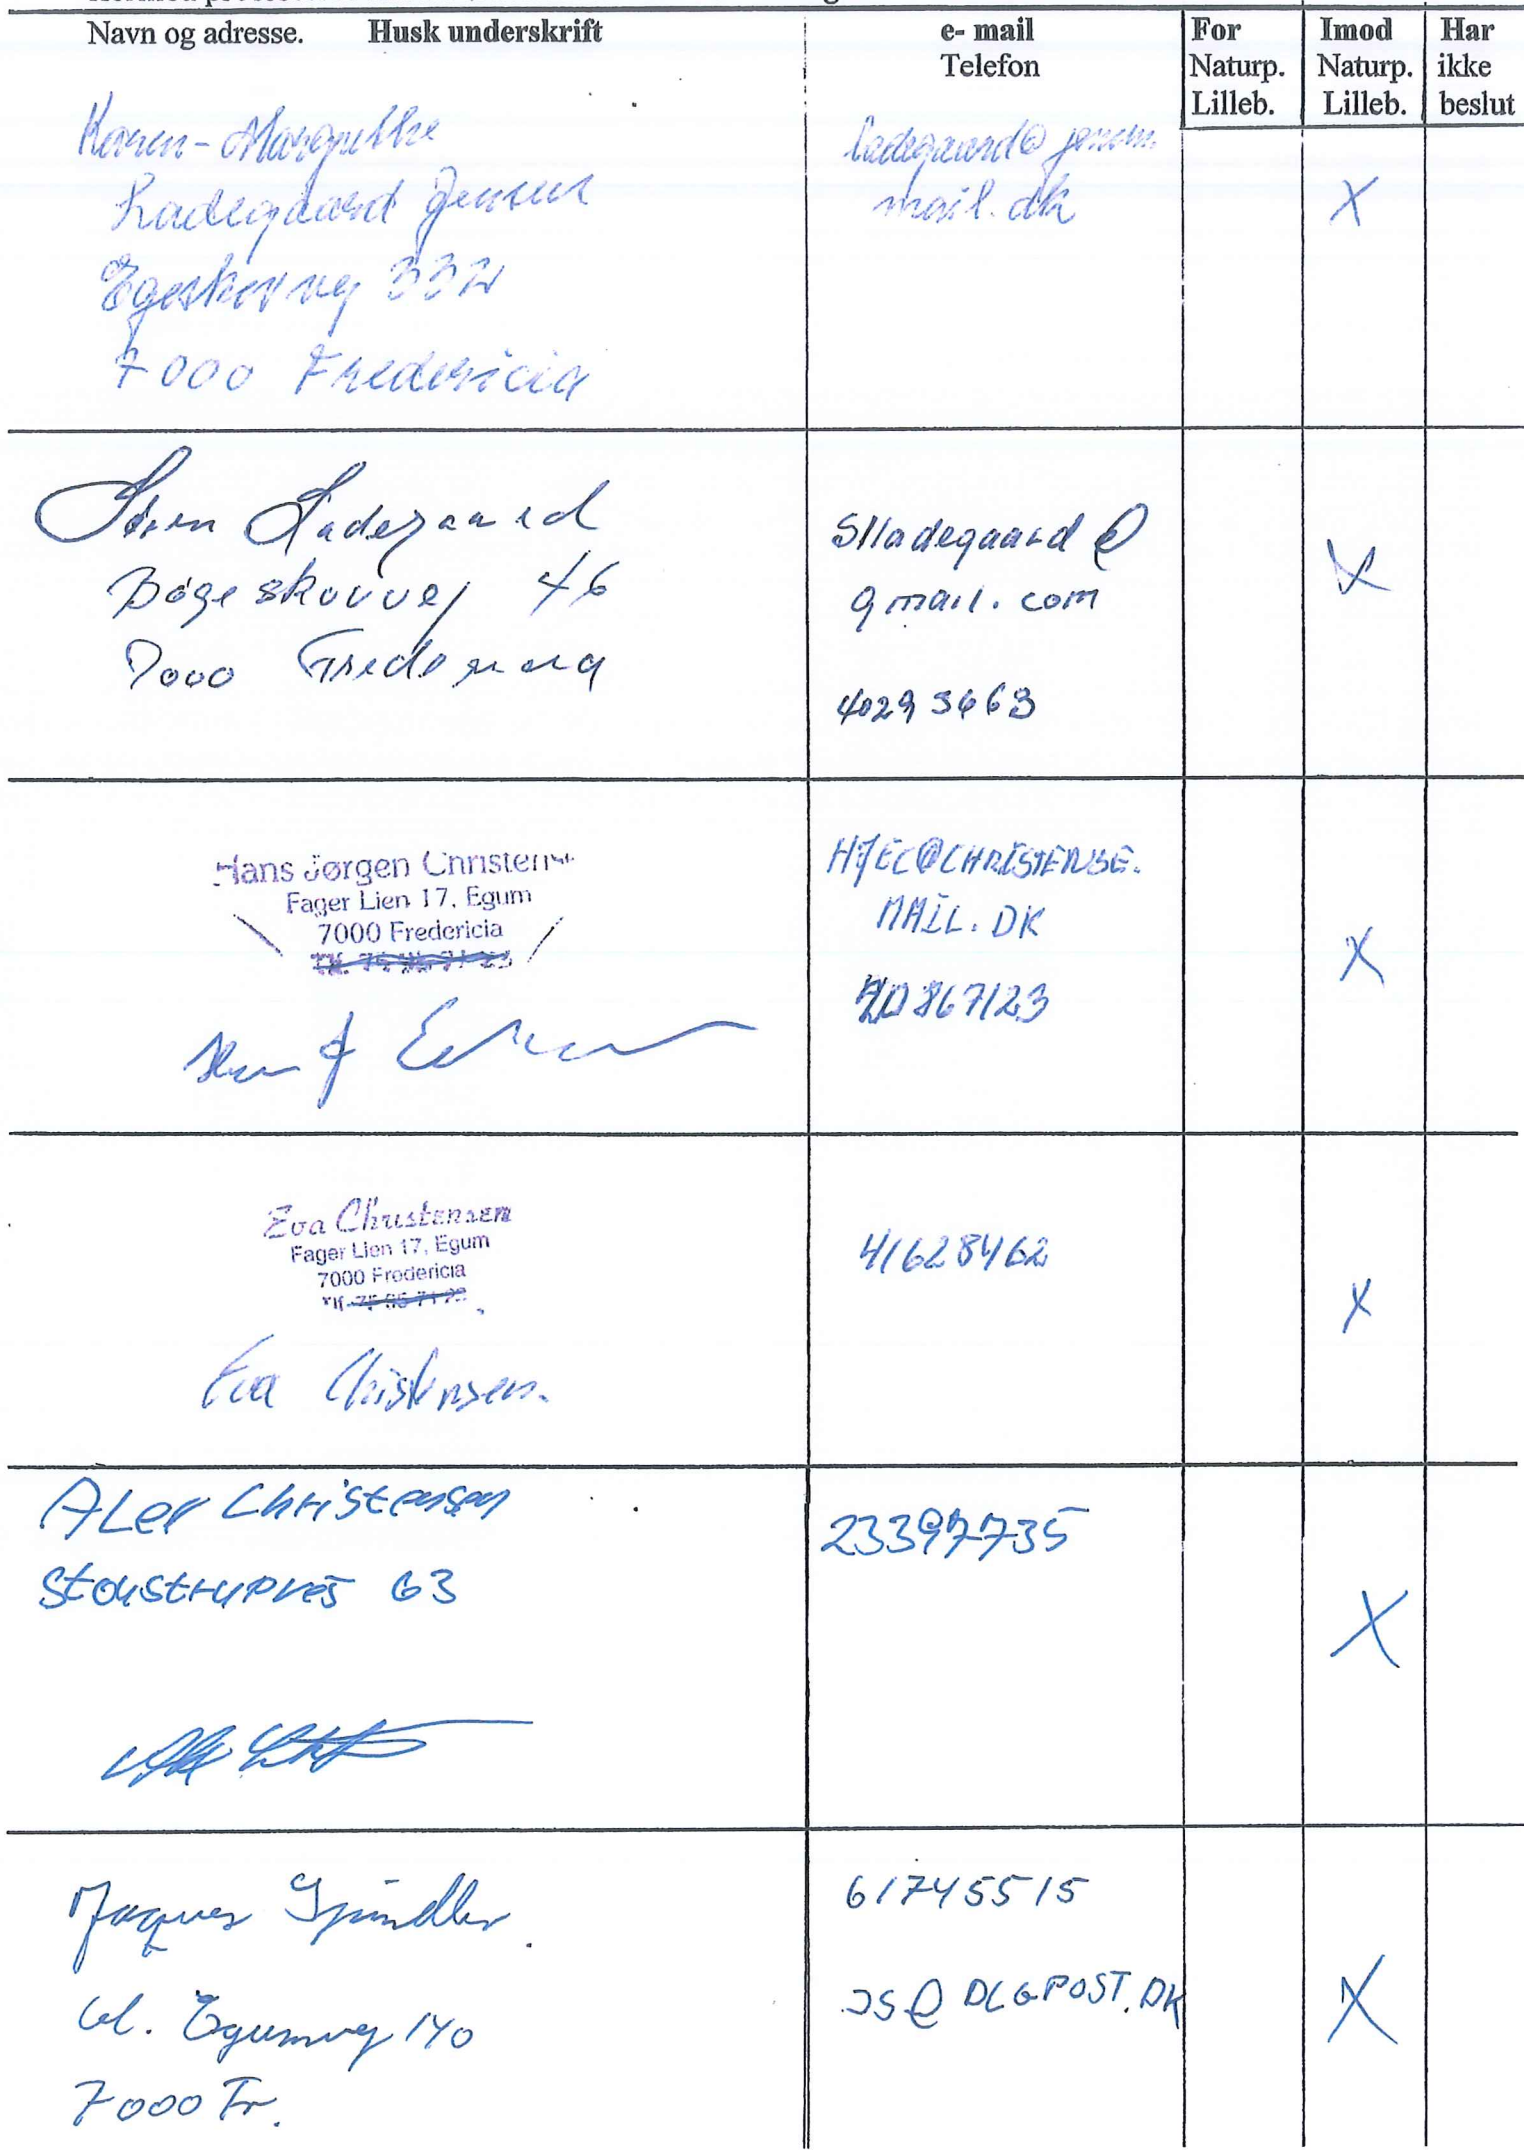 Navn og adresse. Husk underskrift
e- mail
Telefon
For
Naturp.
Lilleb.
Imod
Naturp.
Lilleb.
Har
ikke
beslut
Karen-Margrethe
Ladegaard Jensen
Egeskovvej 332
7000 Fredericia
ladegaard@jensen.
mail.dk
X
Søren Ladegaard
Bøgeskovvej 46
7000 Fredericia
Slladegaard@
gmail.com
40293663
X
Hans Jørgen Christens
Fager Lien 17, Egum
7000 Fredericia
Tlf.
HJEC@CHRISTENSE.
MAIL.DK
20867123
X
Eva Christensen
Fager Lien 17, Egum
7000 Fredericia
Tlf.
Eva Christensen.
41628462
X
Christensen
Stoustrupvej 63
23397735
X
Jaques Spindler.
Gl. Egumvej 140
7000 Fr.
61745515
JS@DLGPOST.DK
X